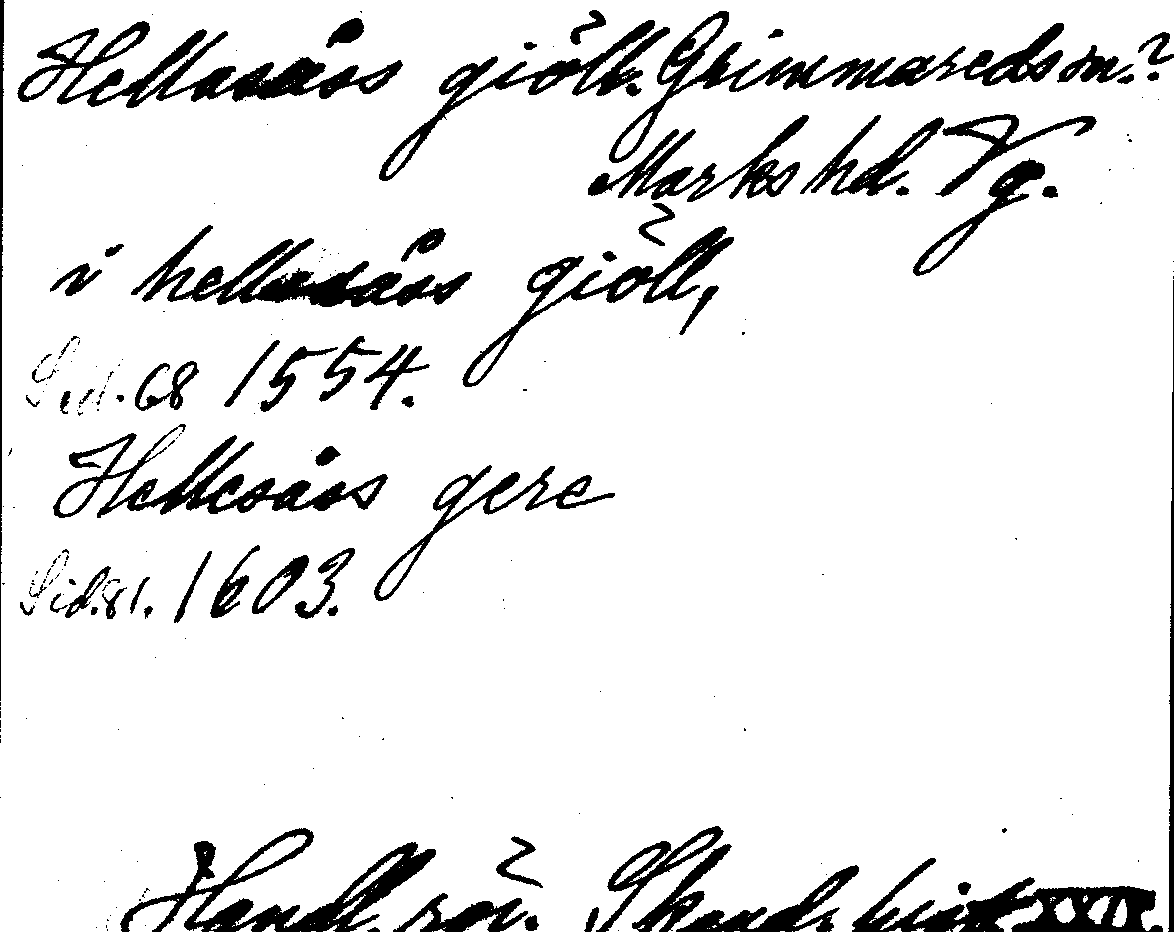 Hellasåss giöll. Grimmareds sn.?
Marks hd. Vg.
i hellasåss giöll,
Sid. 68 1554.
Hellesåss gere
Sid. 81. 1603.
Handl. rör. Skand. hist. XXIX.